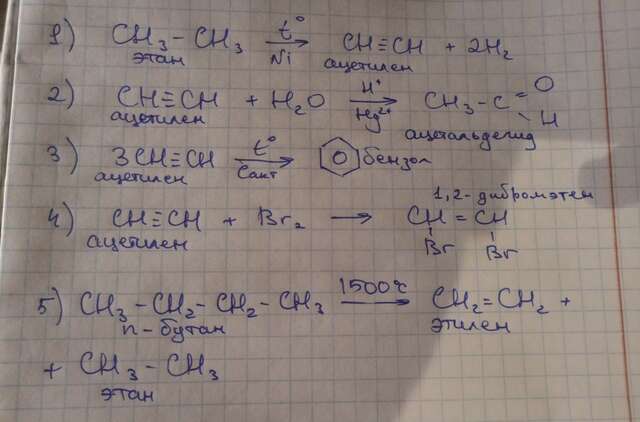 1) CH₃ – CH₃ t° Ni → CH≡CH + 2H₂
этан ацетилен
2) CH≡CH + H₂O H⁺ Hg²⁺ → CH₃ – C = O H
ацетилен ацетальдегид
3) 3CH≡CH t° Cакт → бензол
ацетилен
1,2 - дибромэтен
4) CH≡CH + Br₂ → CH = CH
ацетилен Br Br
5) CH₃ – CH₂ – CH₂ – CH₃ 1500°C → CH₂=CH₂ +
n – бутан этилен
+ CH₃ – CH₃
этан